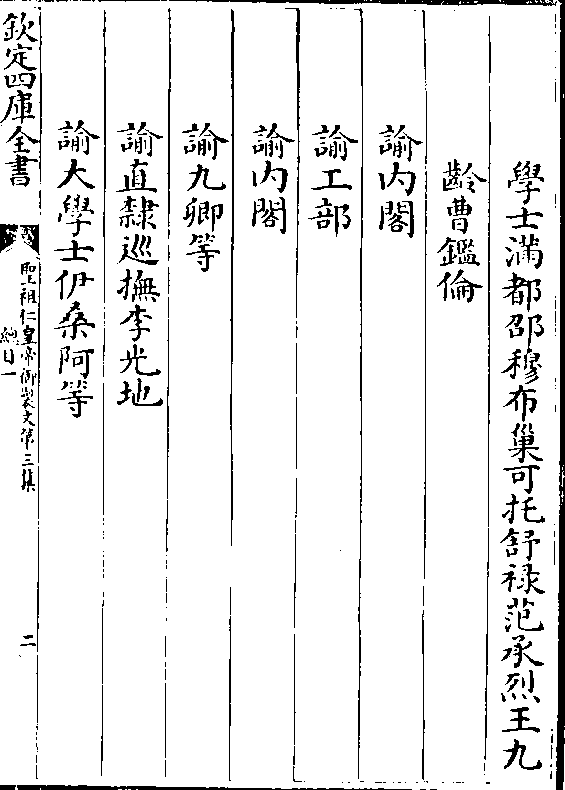 學士滿都邵穆布巢可托舒禄范承烈王九
齡曹鑑倫
諭内閣
諭工部
諭内閣
諭九卿等
諭直隸巡撫李光地
諭大學士伊桑阿等
欽定四庫全書
聖祖仁皇帝御製文第三集
總目一
二